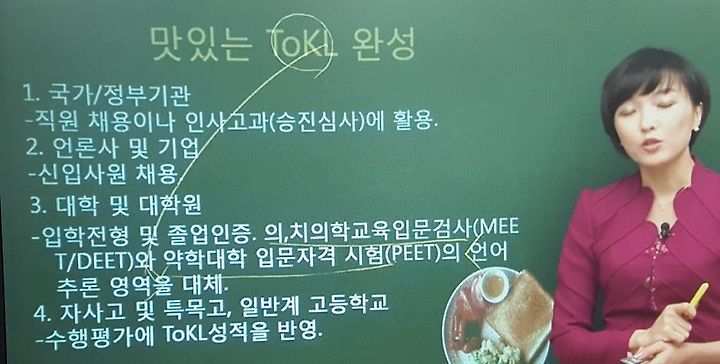 맛있는 ToKL 완성
1. 국가/정부기관
-직원 채용이나 인사고과(승진심사)에 활용.
2. 언론사 및 기업
-신입사원 채용.
3. 대학 및 대학원
-입학전형 및 졸업인증. 의,치의학교육입문검사(MEE
T/DEET)와 약학대학 입문자격 시험(PEET)의 언어
추론 영역을 대체.
4. 자사고 및 특목고, 일반계 고등학교
-수행평가에 ToKL성적을 반영.